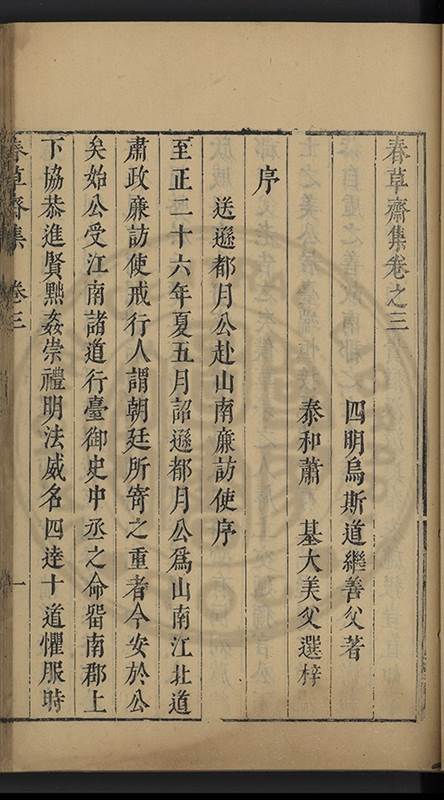 春草齋集卷之三
四明烏斯道繼善父著
泰和蕭基大美父選梓
序
送遜都月公赴山南廉訪使序
至正二十六年夏五月詔遜都月公爲山南江北道
肅政廉訪使戒行人謂朝廷所寄之重者今安於公
矣始公受江南諸道行臺御史中丞之命畱南郡上
下協恭進賢黜姦崇禮明法威名四達十道懼服時
春草齋集 卷三 一